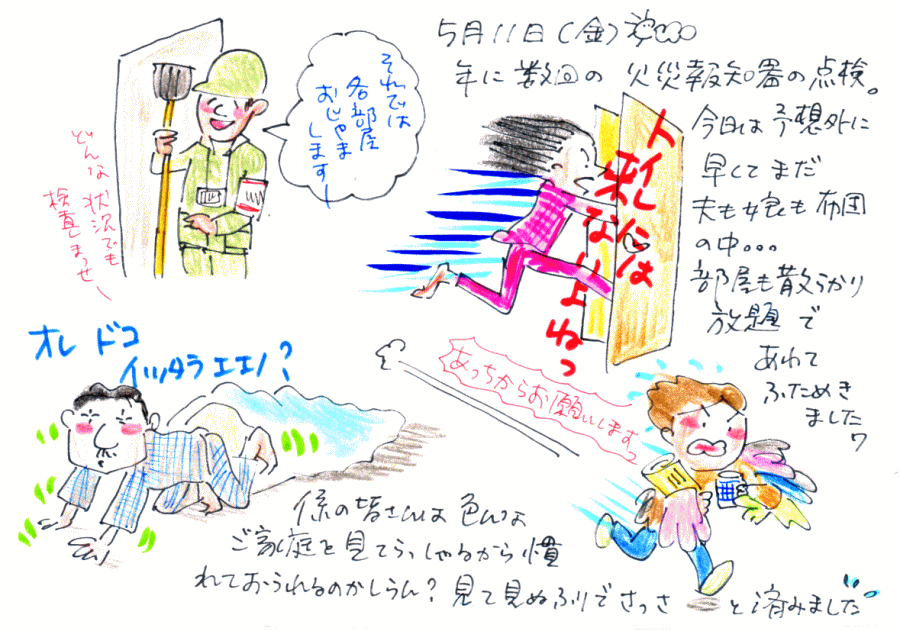 5月11日(金)
年に数回の 火災報知器の点検。
今日は予想外に
早くてまだ
夫も娘も布団
の中。。。
部屋も散らかり
放題で
あわて
ふためき
ました
それでは
各部屋
おじゃま
します〜
どんな状況でも
検査しまっせ〜
トイレには
来ないよねっ
オレ ドコ
イッタラエエノ?
あっちからお願いします
係の皆さんは 色んな
ご家庭を見てらっしゃるから 慣
れておられるのかしらん? 見て見ぬふりでさっさ と済みました